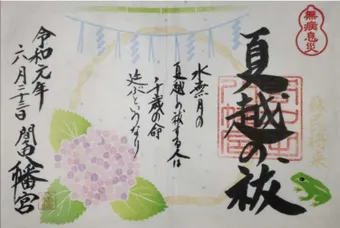 無病息災
夏越の祓
水無月の
夏越の祓する人は
千歳の命
延ぶといふなり
令和元年
六月二十三日
八幡宮